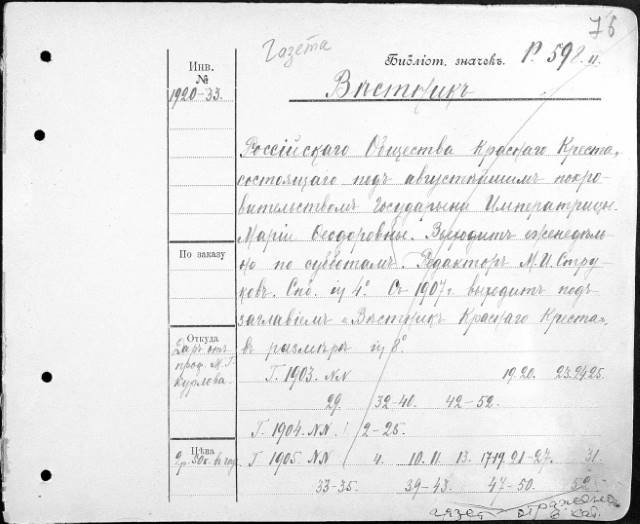 76
Газета
Библіот. значекъ. P. 598. II.
Инв.
№
1920-33.
Вѣстникъ
Россійскаго Общества Краснаго Креста,
состоящаго подъ августѣйшимъ покро-
вительствомъ Государыни Императрицы
Маріи Ѳеодоровны. Выходитъ еженедѣль-
но по субботамъ. Редакторъ М. И. Стру-
ковъ. Спб. in 4º. Съ 1907 г. выходитъ подъ
заглавіемъ «Вѣстникъ Краснаго Креста»,
въ размѣрѣ in 8º
По заказу
Откуда
Даръ отъ
проф. М. Г.
Курлова.
Г. 1903. NN 19. 20. 23. 24. 25.
29. 32-40. 42-52.
Г. 1904. NN 2-25.
Цѣна
2р. 50к. въ год.
Г. 1905 NN 4. 10. 11. 13. 17. 19. 21-27. 31.
33-35. 39-43. 47-50. 52.
газет